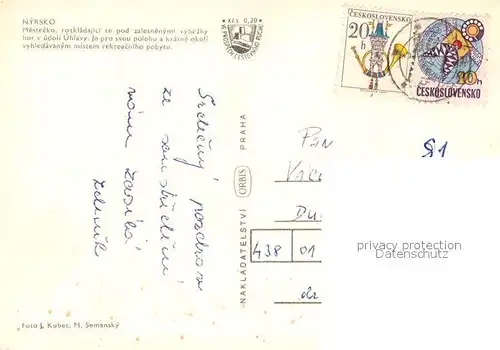 NÝRSKO
Městečko, rozkládající se pod zalesněnými výběžky
hor v údolí Úhlavy. Je pro svou polohu a krásné okolí
vyhledávaným místem rekreačního pobytu.
Kčs 0,20
ČESKOSLOVENSKO
20
h
30h
ČESKOSLOVENSKO
Srdečný pozdrav
ze
nám zasílá
Zdeněk
NAKLADATELSTVÍ ORBIS PRAHA
438 01
privacy protection
Datenschutz
Foto J. Kubec, M. Semanský